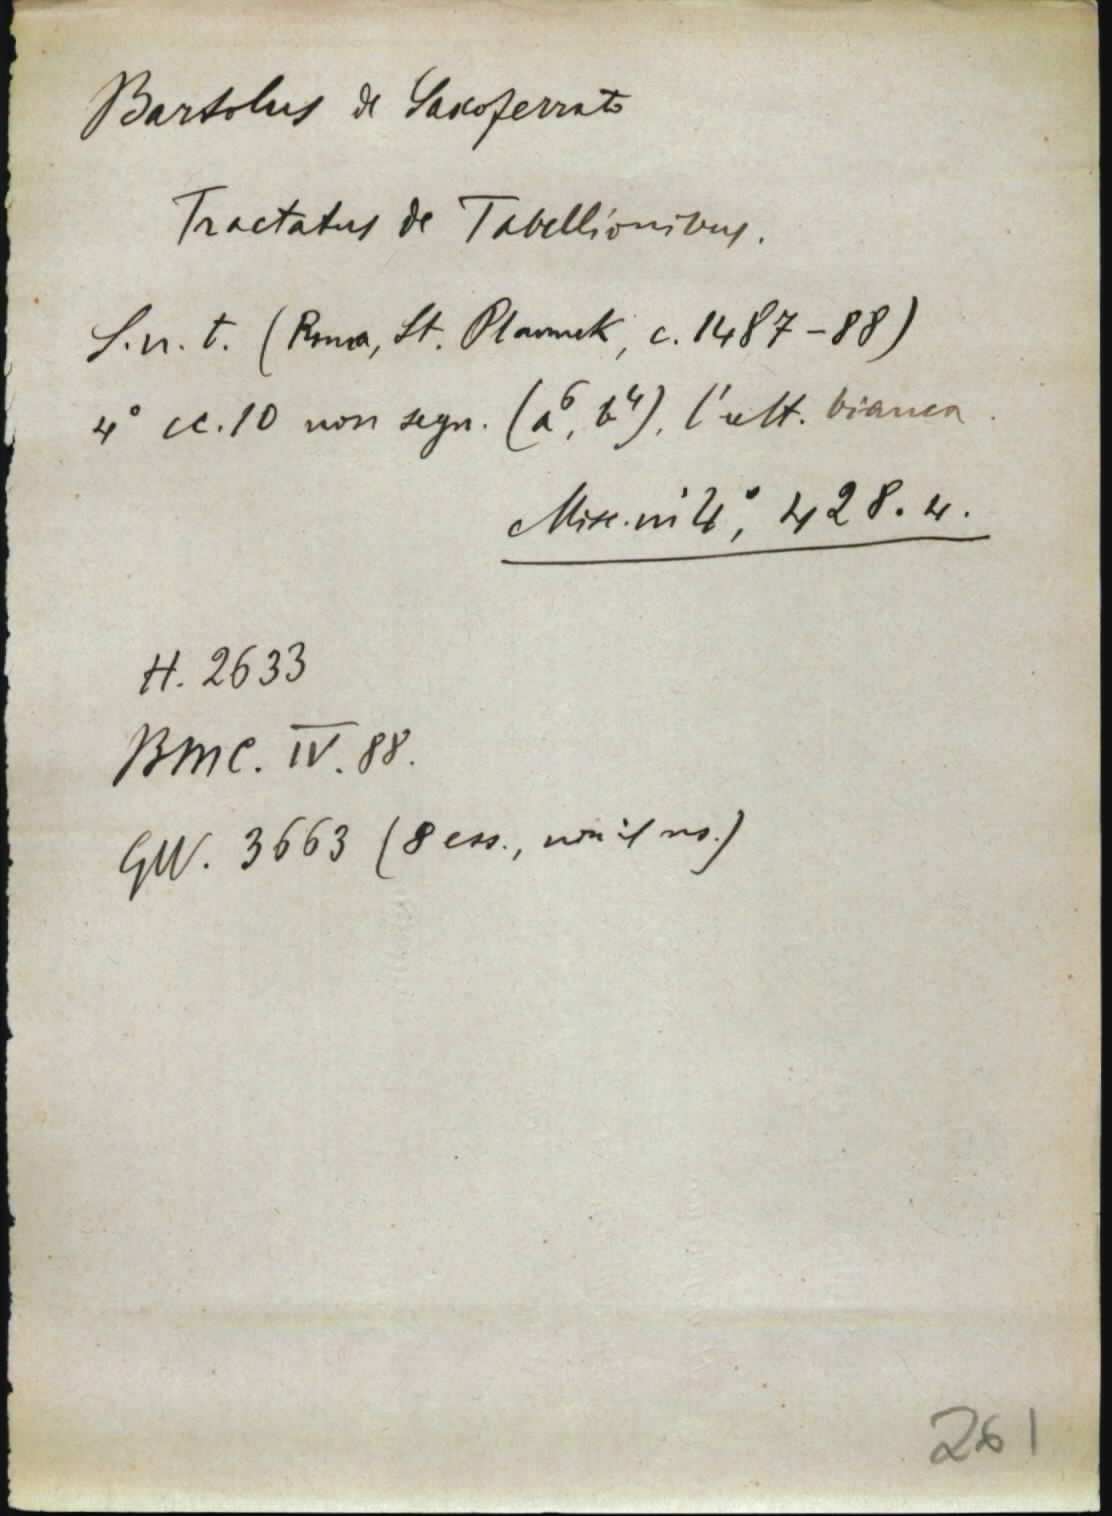 Bartolus de Saxoferrato
Tractatus de Tabellionibus.
S. n. t. (Roma, St. Plannck, c. 1487-88)
4° cc. 10 non segn. (a⁶, b⁴), l'ult. bianca.
Misc. in 4°, 428. 4.
H. 2633
BMC. IV. 88.
GW. 3663 (8 ess., non il ns.)
261